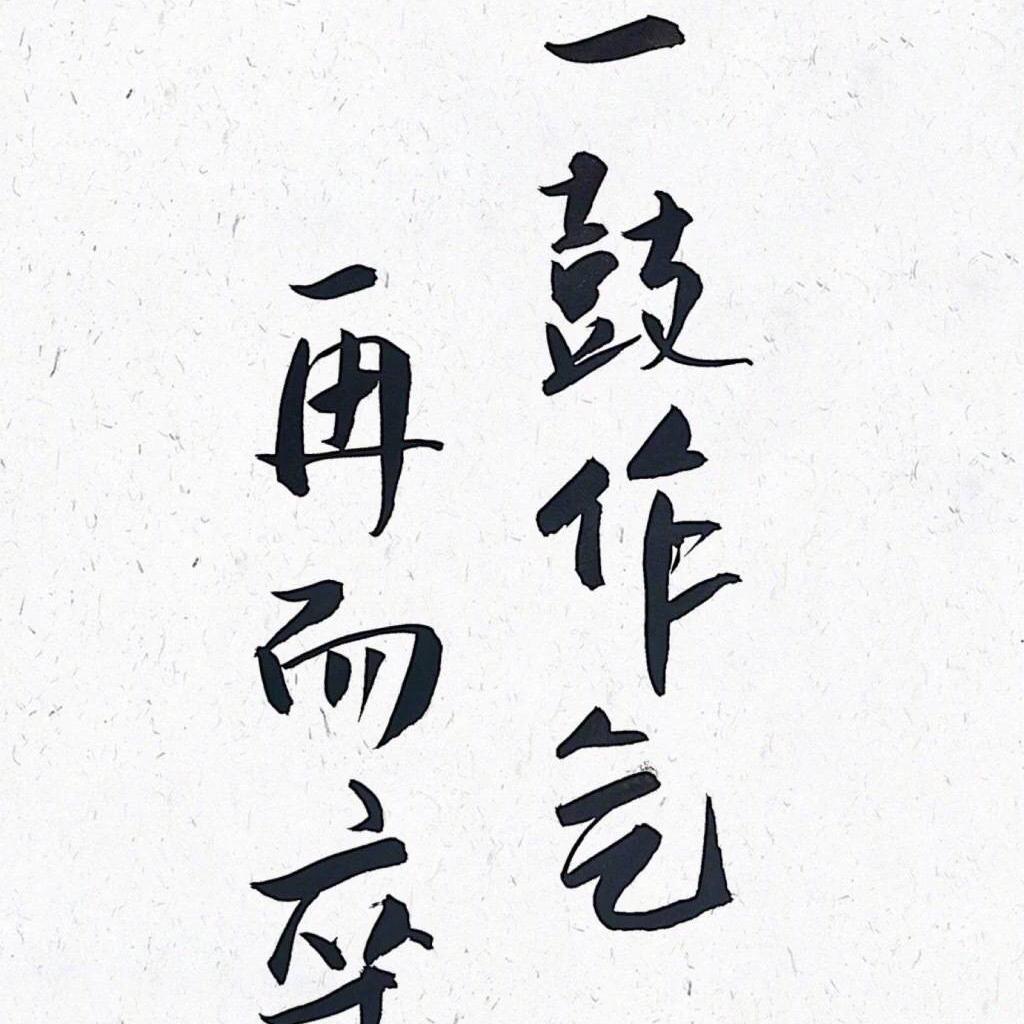 一鼓作气
再而